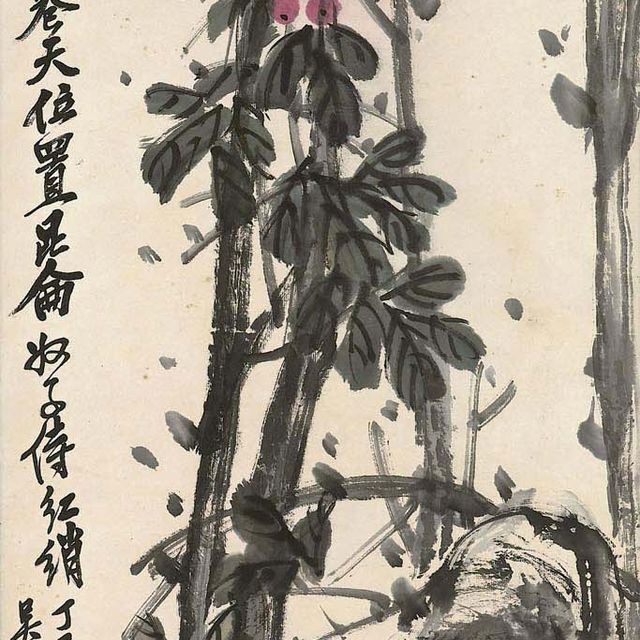 天位置昆侖奴子侍紅綃
丁
吳